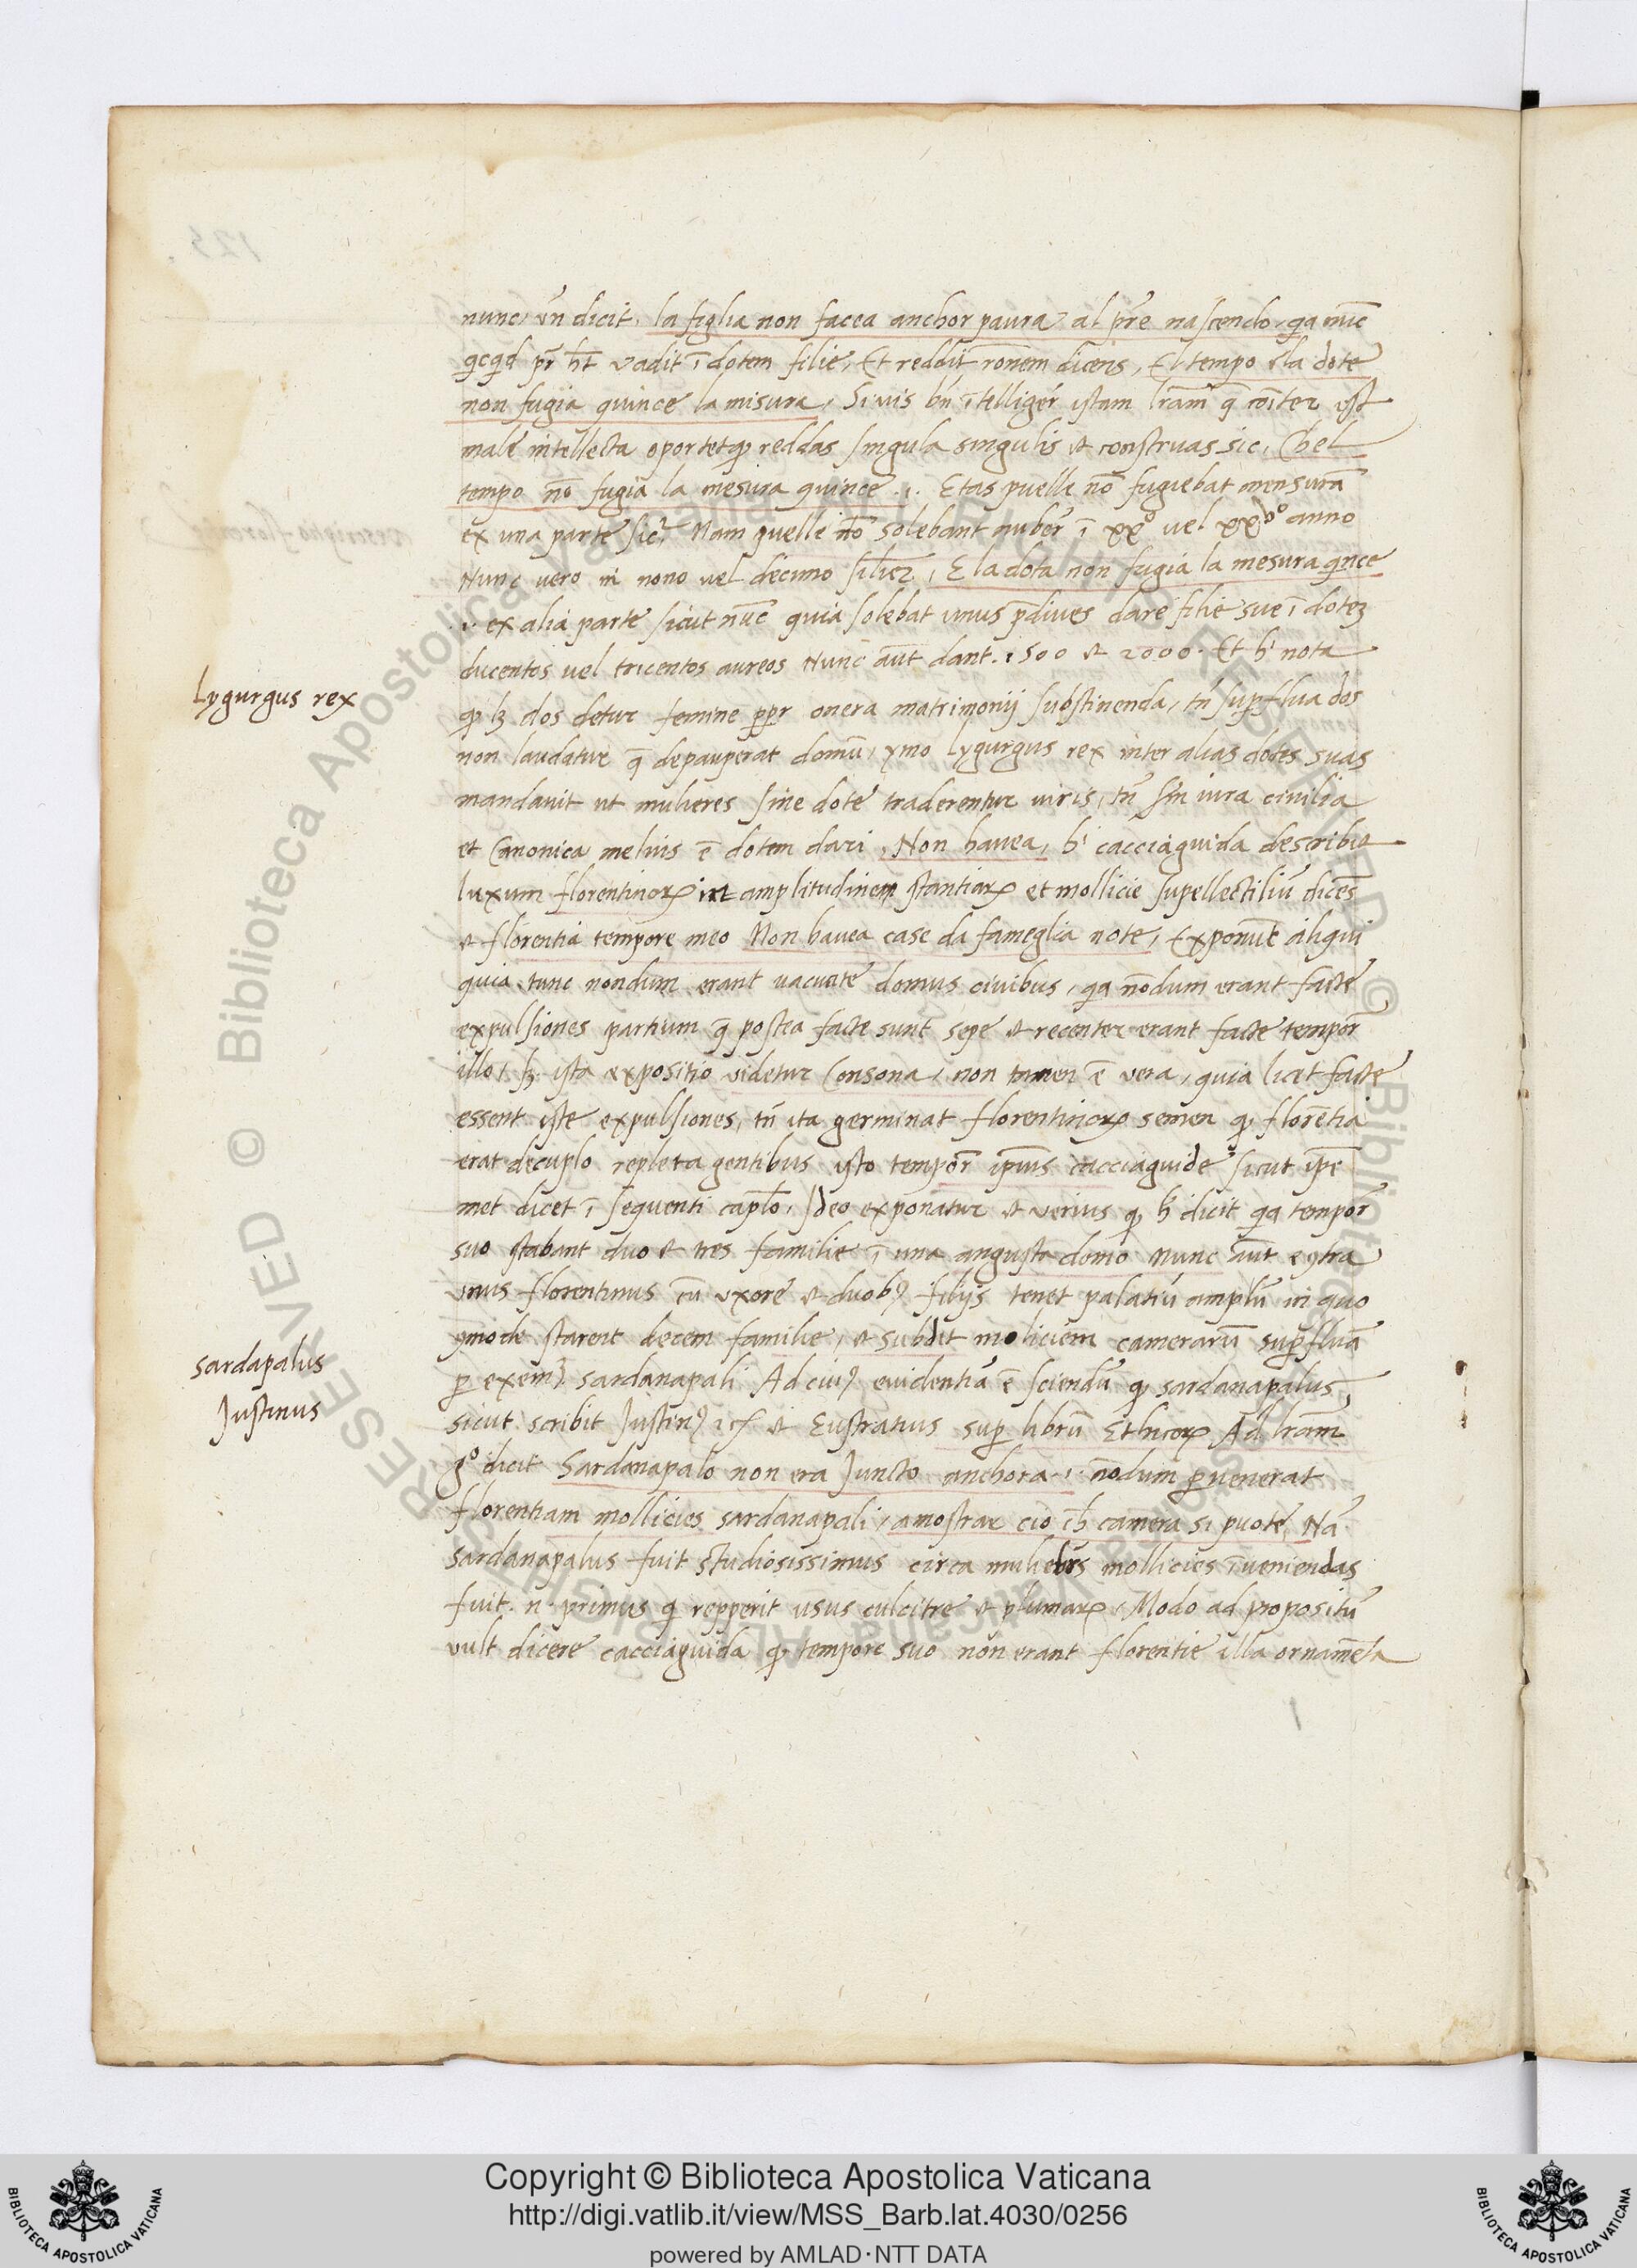 nunc, vñ dicit, la figlia non facea anchor paura al pre nascendo, qa nuc
qcqd pr ht vadit i dotem filie, Et reddit ronem dicens, El tempo e la dote
non fugia quince la misura, Si vis bn itelliger istam lram q coiter est
male intellecta oportet qp reddas singula singulis et construas sic, Chel
tempo no fugia la mesura quince .i. Etas puelle no fugiebat mensura
ex una parte sic, Nam puelle no solebant nuber i xxº vel xxvº anno
Nunc vero in nono vel decimo silr, E la dota non fugia la mesura qnce
.i. ex alia parte sicut nuc quia solebat unus pdives dare filie sue i dotez
ducentos vel tricentos aureos Nunc aut dant 1500 et 2000. Et h nota
Lygurgus rex
qp lz dos detur femine ppr onera matrimonij substinenda, tn supflua dos
non laudatur q depauperat domu, ymo lygurgus rex inter alias dotes suas
mandavit ut mulieres sine dote traderentur viris, tn sm iura civilia
et Canonica melius e dotem dari, Non havea, h cacciaguida describit
luxum florentinorum amplitudinem stantiarum et mollicie supellectiliu dices
et florentia tempore meo Non havea case da fameglia note, Exponut aliqui
quia tunc nondum erant vacuate domus civibus, qa nodum erant facte
expulsiones partium q postea facte sunt sepe et recenter erant facte tempor
illo, sz ista expositio videtur Consona, non tamen e vera, quia licet facte
essent iste expulsiones, tn ita germinat florentinorum semen qp floretia
erat decuplo repleta gentibus isto tempor ipius cacciaguide sicut ipe
met dicet i sequenti caplo, Ideo exponatur et verius qp h dicit qa tempor
suo stabant duo et tres familie i una angusta domo Nunc aut extra
unus florentinus cu uxore et duobus filijs tenet palatiu amplu in quo
9mode starent decem familie, et subdit moliciem cameraru supflua
Sardapalus
p exem Sardanapali Ad cuius evidentia e sciendu qp sardanapalus,
Justinus
sicut scribit Justinus et Eustratius sup libru Ethicorum Ad lram
gº dicit Sardanapalo non era Juncto anchora .i. nodum pvenerat
florentiam mollicies sardanapali, amostrar cio ch camera si puote, Na
Sardanapalus fuit studiosissimus circa muliebrs mollicies iveniendas
fuit .n. primus q repperit usus culcitre et plumarum. Modo ad propositu
vult dicere cacciaguida qp tempore suo non erant florentie illa ornameta
Copyright © Biblioteca Apostolica Vaticana
http://digi.vatlib.it/view/MSS_Barb.lat.4030/0256
powered by AMLAD·NTT DATA
BIBLIOTECA APOSTOLICA VATICANA
BIBLIOTECA APOSTOLICA VATICANA